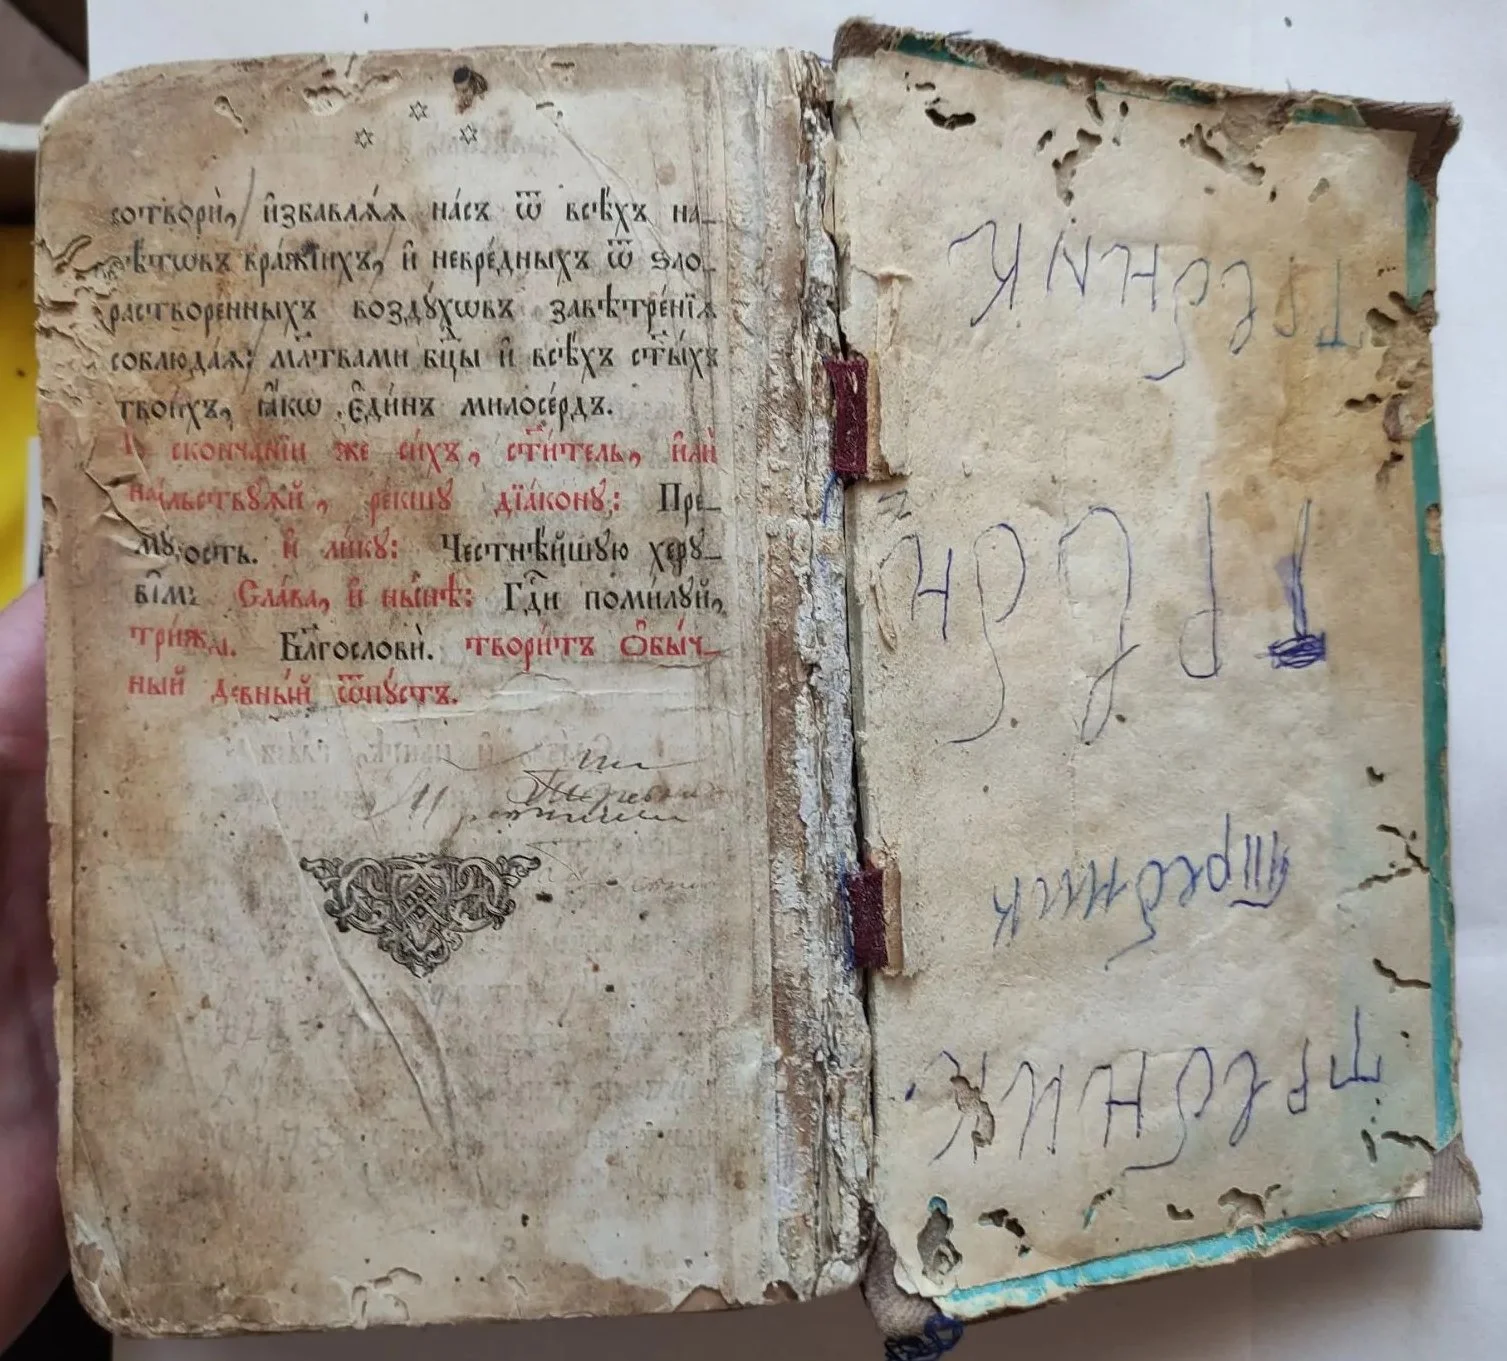 сотвори̇̀, и҆збавлѧ́ѧ на́съ ѿ всѣ́хъ на_
вѣ́тѡвъ вра́жїихъ, и҆ невре́дныхъ ѿ ѕло_
растворе́нныхъ возду́хѡвъ завѣтре́нїѧ
соблюда́ѧ: мл҃твами бцⷣы и҆ всѣ́хъ ст҃ы́хъ
твои́хъ, ꙗ҆́кѡ є҆ди́нъ милосе́рдъ.
По сконча́нїи же си́хъ, ст҃и́тель, и҆лѝ
нача́льствꙋѧй, ре́кшꙋ дїа́конꙋ: Пре_
мꙋ́дрость. и҆ ли́кꙋ: Честнѣ́йшꙋю херꙋ_
ві̑мъ: Сла́ва, и҆ ны́нѣ: Гдⷭ҇и поми́лꙋй,
три́жды. Бл҃гословѝ. твори́тъ ѻ҆бы́ч_
ный дневны́й ѿпꙋ́стъ.
Требник
Требн
Требник
Требник